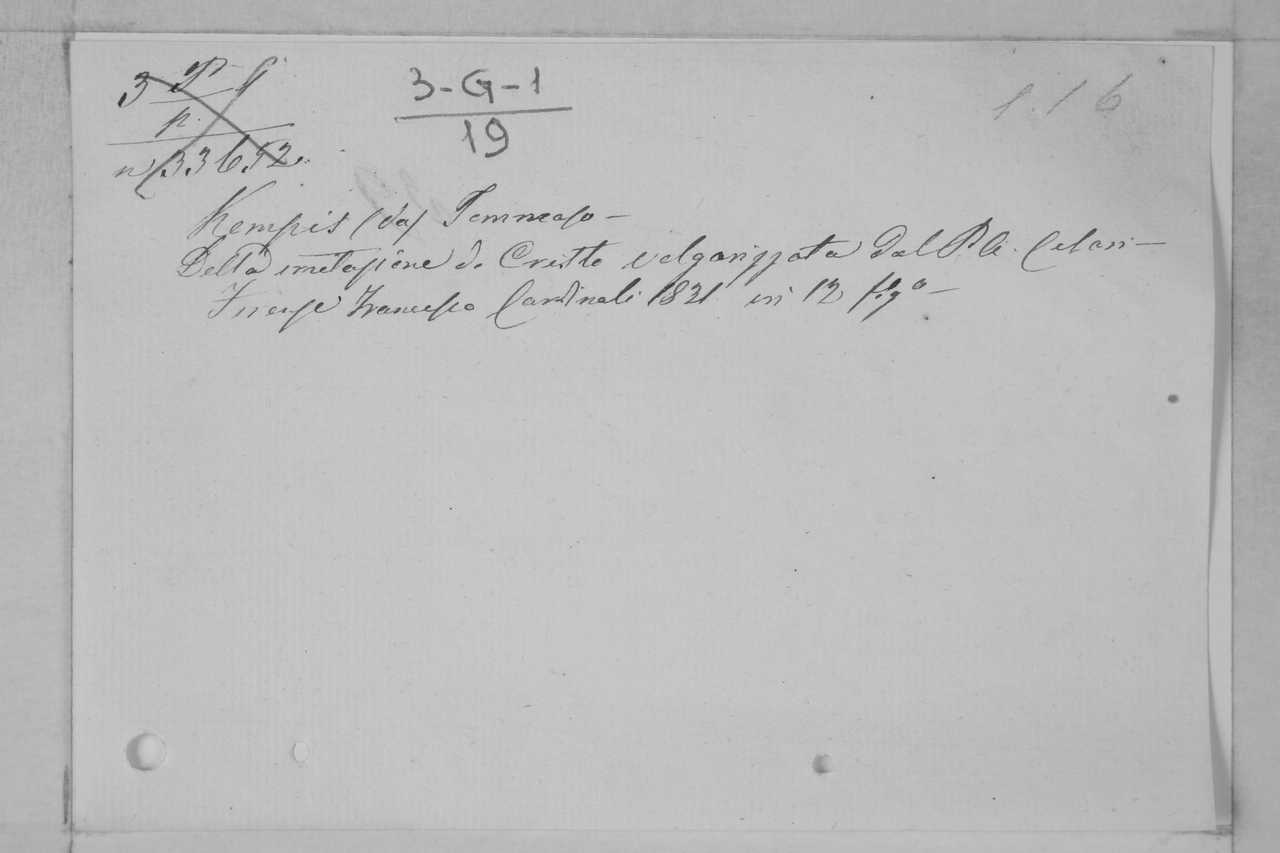 3 G
p.
n 33652.
3-G-1
19
1.16
Kempis (da) Tommaso —
Della imitazione di Cristo volgarizzata dal P. A. Cesari —
Firenze Francesco Cardinali 1821 in 12 fig° —